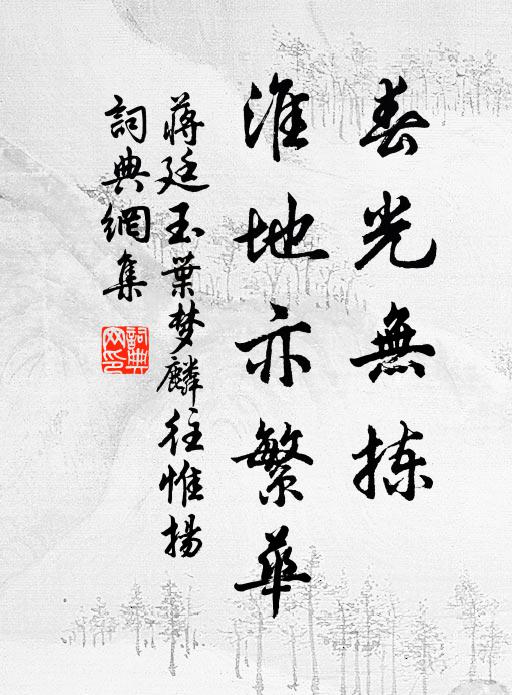 春光無揀
淮地亦繁華
蔣廷玉葉梦麟往惟揚
詞典網集
詞典
网印